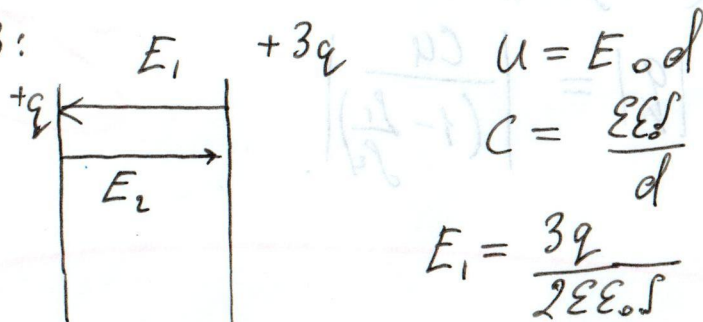 3:
E₁ +3q U = E₀d
+q
E₂ C = εε₀S / d
E₁ = 3q / 2εε₀S